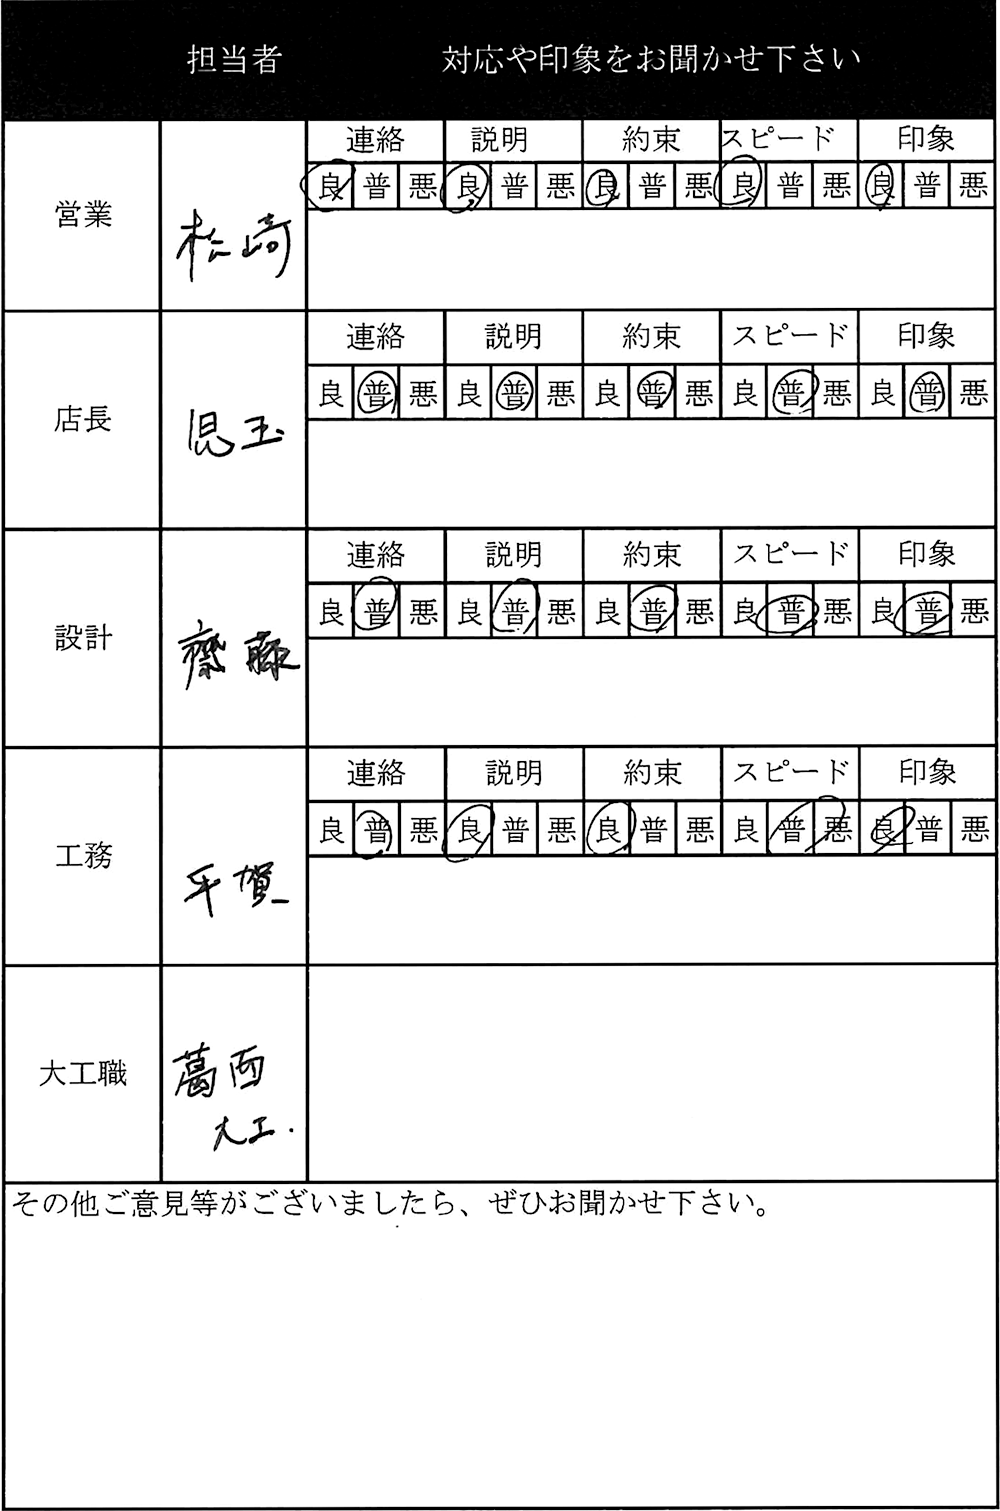 担当者 対応や印象をお聞かせ下さい
連絡 説明 約束 スピード 印象
良 普 悪 良 普 悪 良 普 悪 良 普 悪 良 普 悪
営業 松崎
連絡 説明 約束 スピード 印象
良 普 悪 良 普 悪 良 普 悪 良 普 悪 良 普 悪
店長 児玉
連絡 説明 約束 スピード 印象
良 普 悪 良 普 悪 良 普 悪 良 普 悪 良 普 悪
設計 齋藤
連絡 説明 約束 スピード 印象
良 普 悪 良 普 悪 良 普 悪 良 普 悪 良 普 悪
工務 平賀
大工職 葛西
大工.
その他ご意見等がございましたら、ぜひお聞かせ下さい。